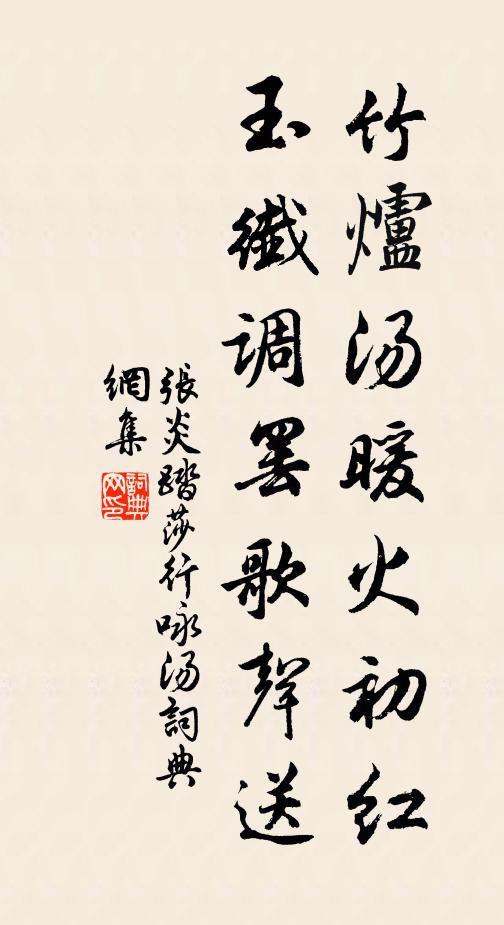 竹爐汤暖火初红
玉纖调罢歌聲送
張炎踏莎行咏汤詞典
網集
詞典
网印